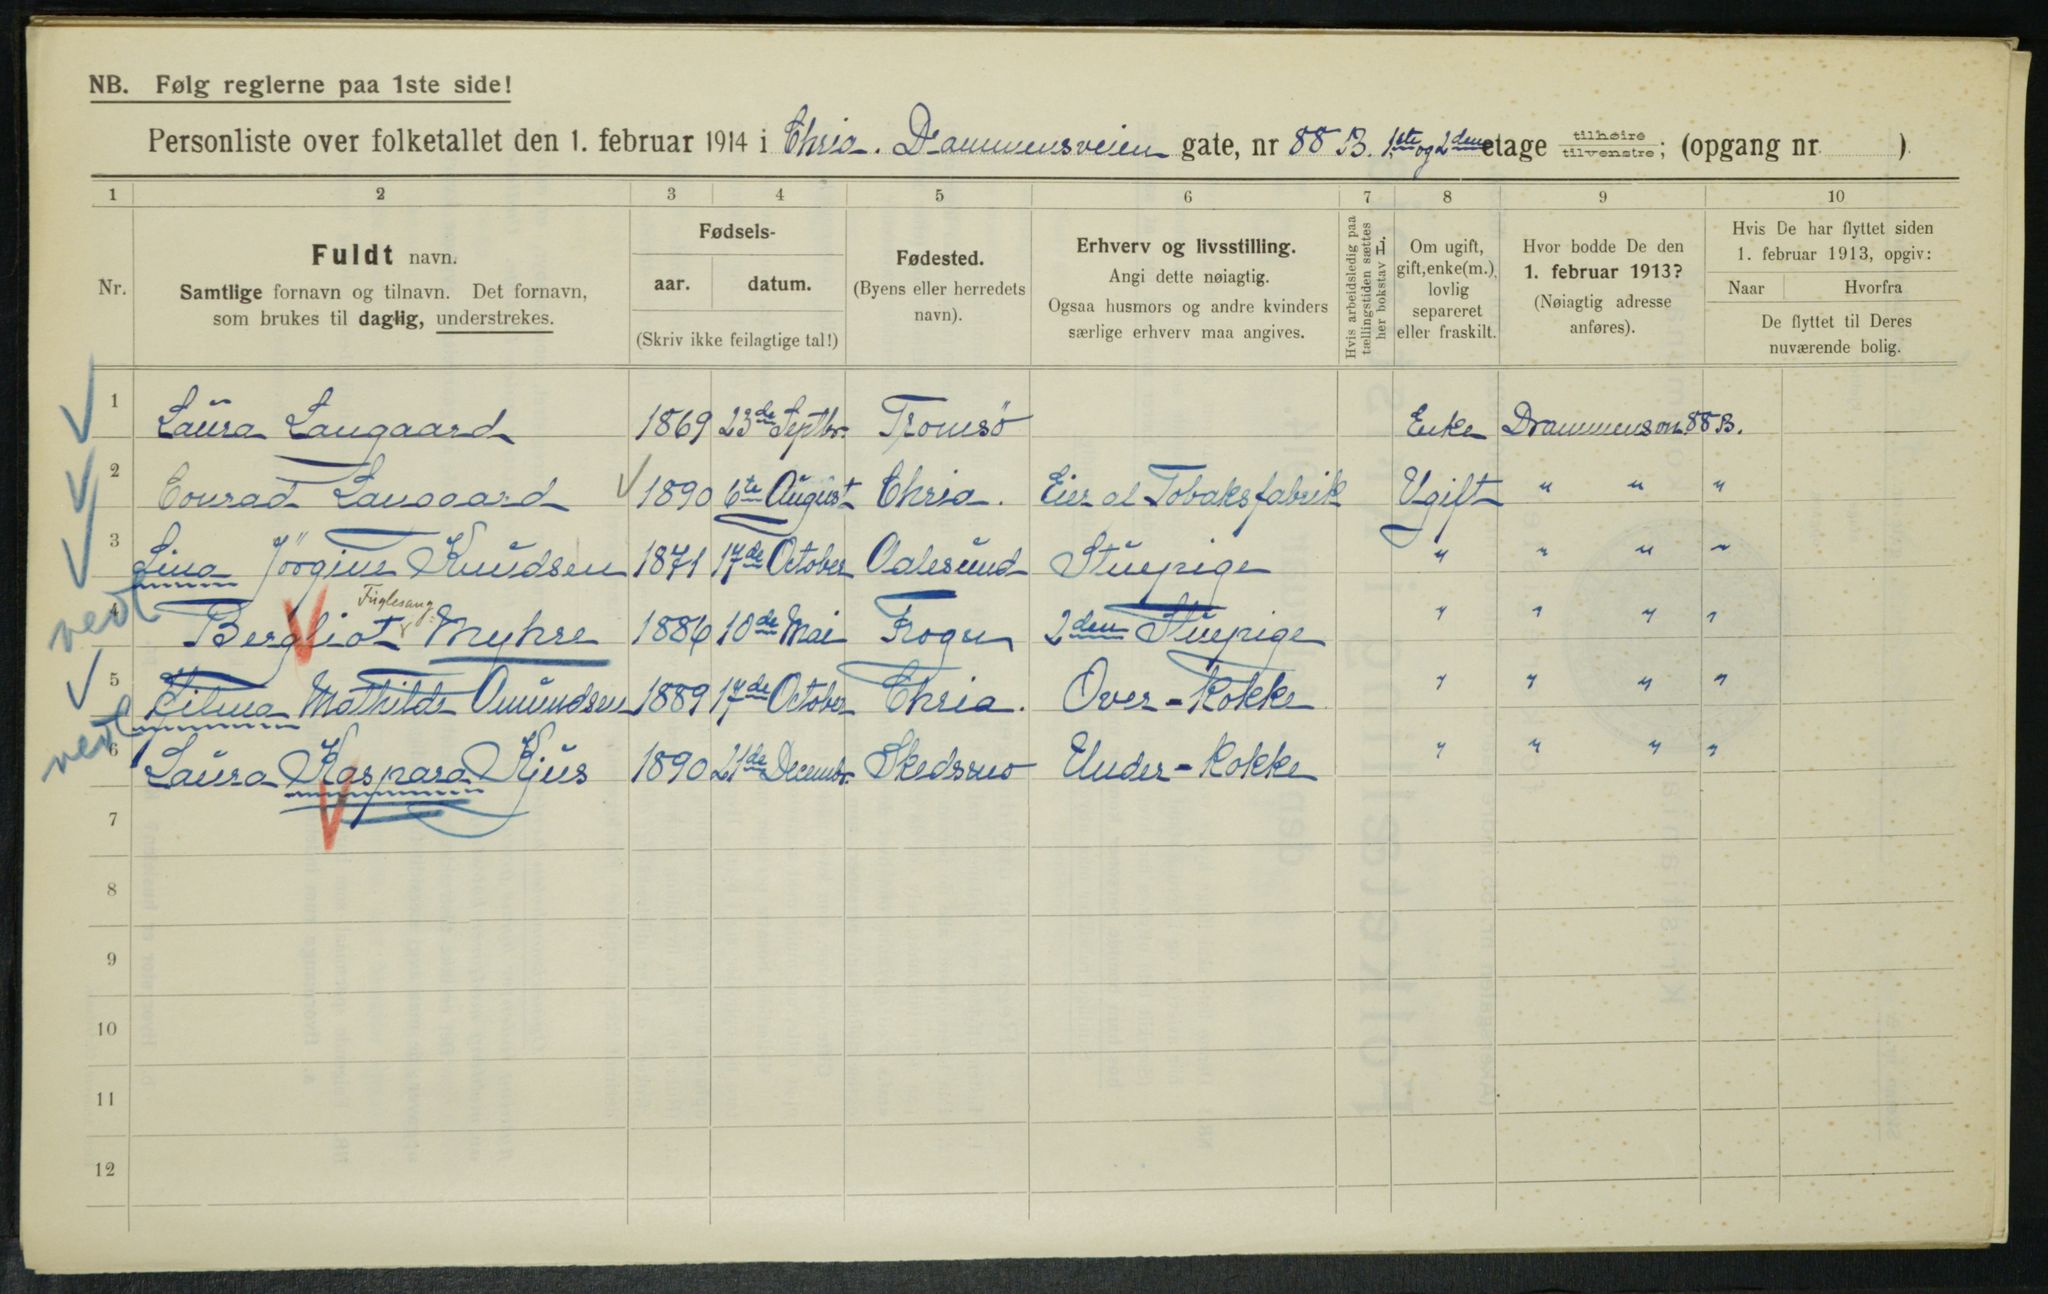 NB. Følg reglerne paa 1ste side!
Personliste over folketallet den 1. februar 1914 i Chria. Drammensveien gate, nr 88 B. 1ste og 2den etage tilhøire tilvenstre; (opgang nr )
1 2 3 4 5 6 7 8 9 10
Nr.
Fuldt navn.
Samtlige fornavn og tilnavn. Det fornavn,
som brukes til daglig, understrekes.
Fødsels-
aar. datum.
(Skriv ikke feilagtige tal!)
Fødested.
(Byens eller herredets
navn).
Erhverv og livsstilling.
Angi dette nøiagtig.
Ogsaa husmors og andre kvinders
særlige erhverv maa angives.
Hvis arbeidsledig paa
tællingstiden sættes
her bokstav l
Om ugift,
gift, enke(m.),
lovlig
separeret
eller fraskilt.
Hvor bodde De den
1. februar 1913?
(Nøiagtig adresse
anføres).
Hvis De har flyttet siden
1. februar 1913, opgiv:
Naar Hvorfra
De flyttet til Deres
nuværende bolig.
1 Laura Langaard 1869 23de Septbr. Tromsö Enke Drammensvn 88 B.
2 Conrad Langaard 1890 6te August Chria. Eier af Tobaksfabrik Ugift " " "
3 Lina Jörgine Knudsen 1871 17de October Aalesund Stuepige " " " "
Fuglesang
4 Bergliot Myhre 1886 10de Mai Frogn 2den Stuepige " " " "
vedl
5 Hilma Mathilde Amundsen 1889 17de October Chria. Over-Kokke " " " "
vedl
6 Laura Kaspara Kjus 1890 21de Decembr. Skedsmo Under-Kokke " " " "
7
8
9
10
11
12